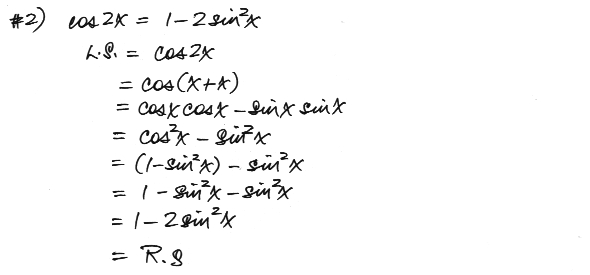 #2) cos2x = 1-2sin²x
L.S. = cos2x
= cos(x+x)
= cosx cosx - sinx sinx
= cos²x - sin²x
= (1-sin²x) - sin²x
= 1 - sin²x - sin²x
= 1 - 2sin²x
= R.S